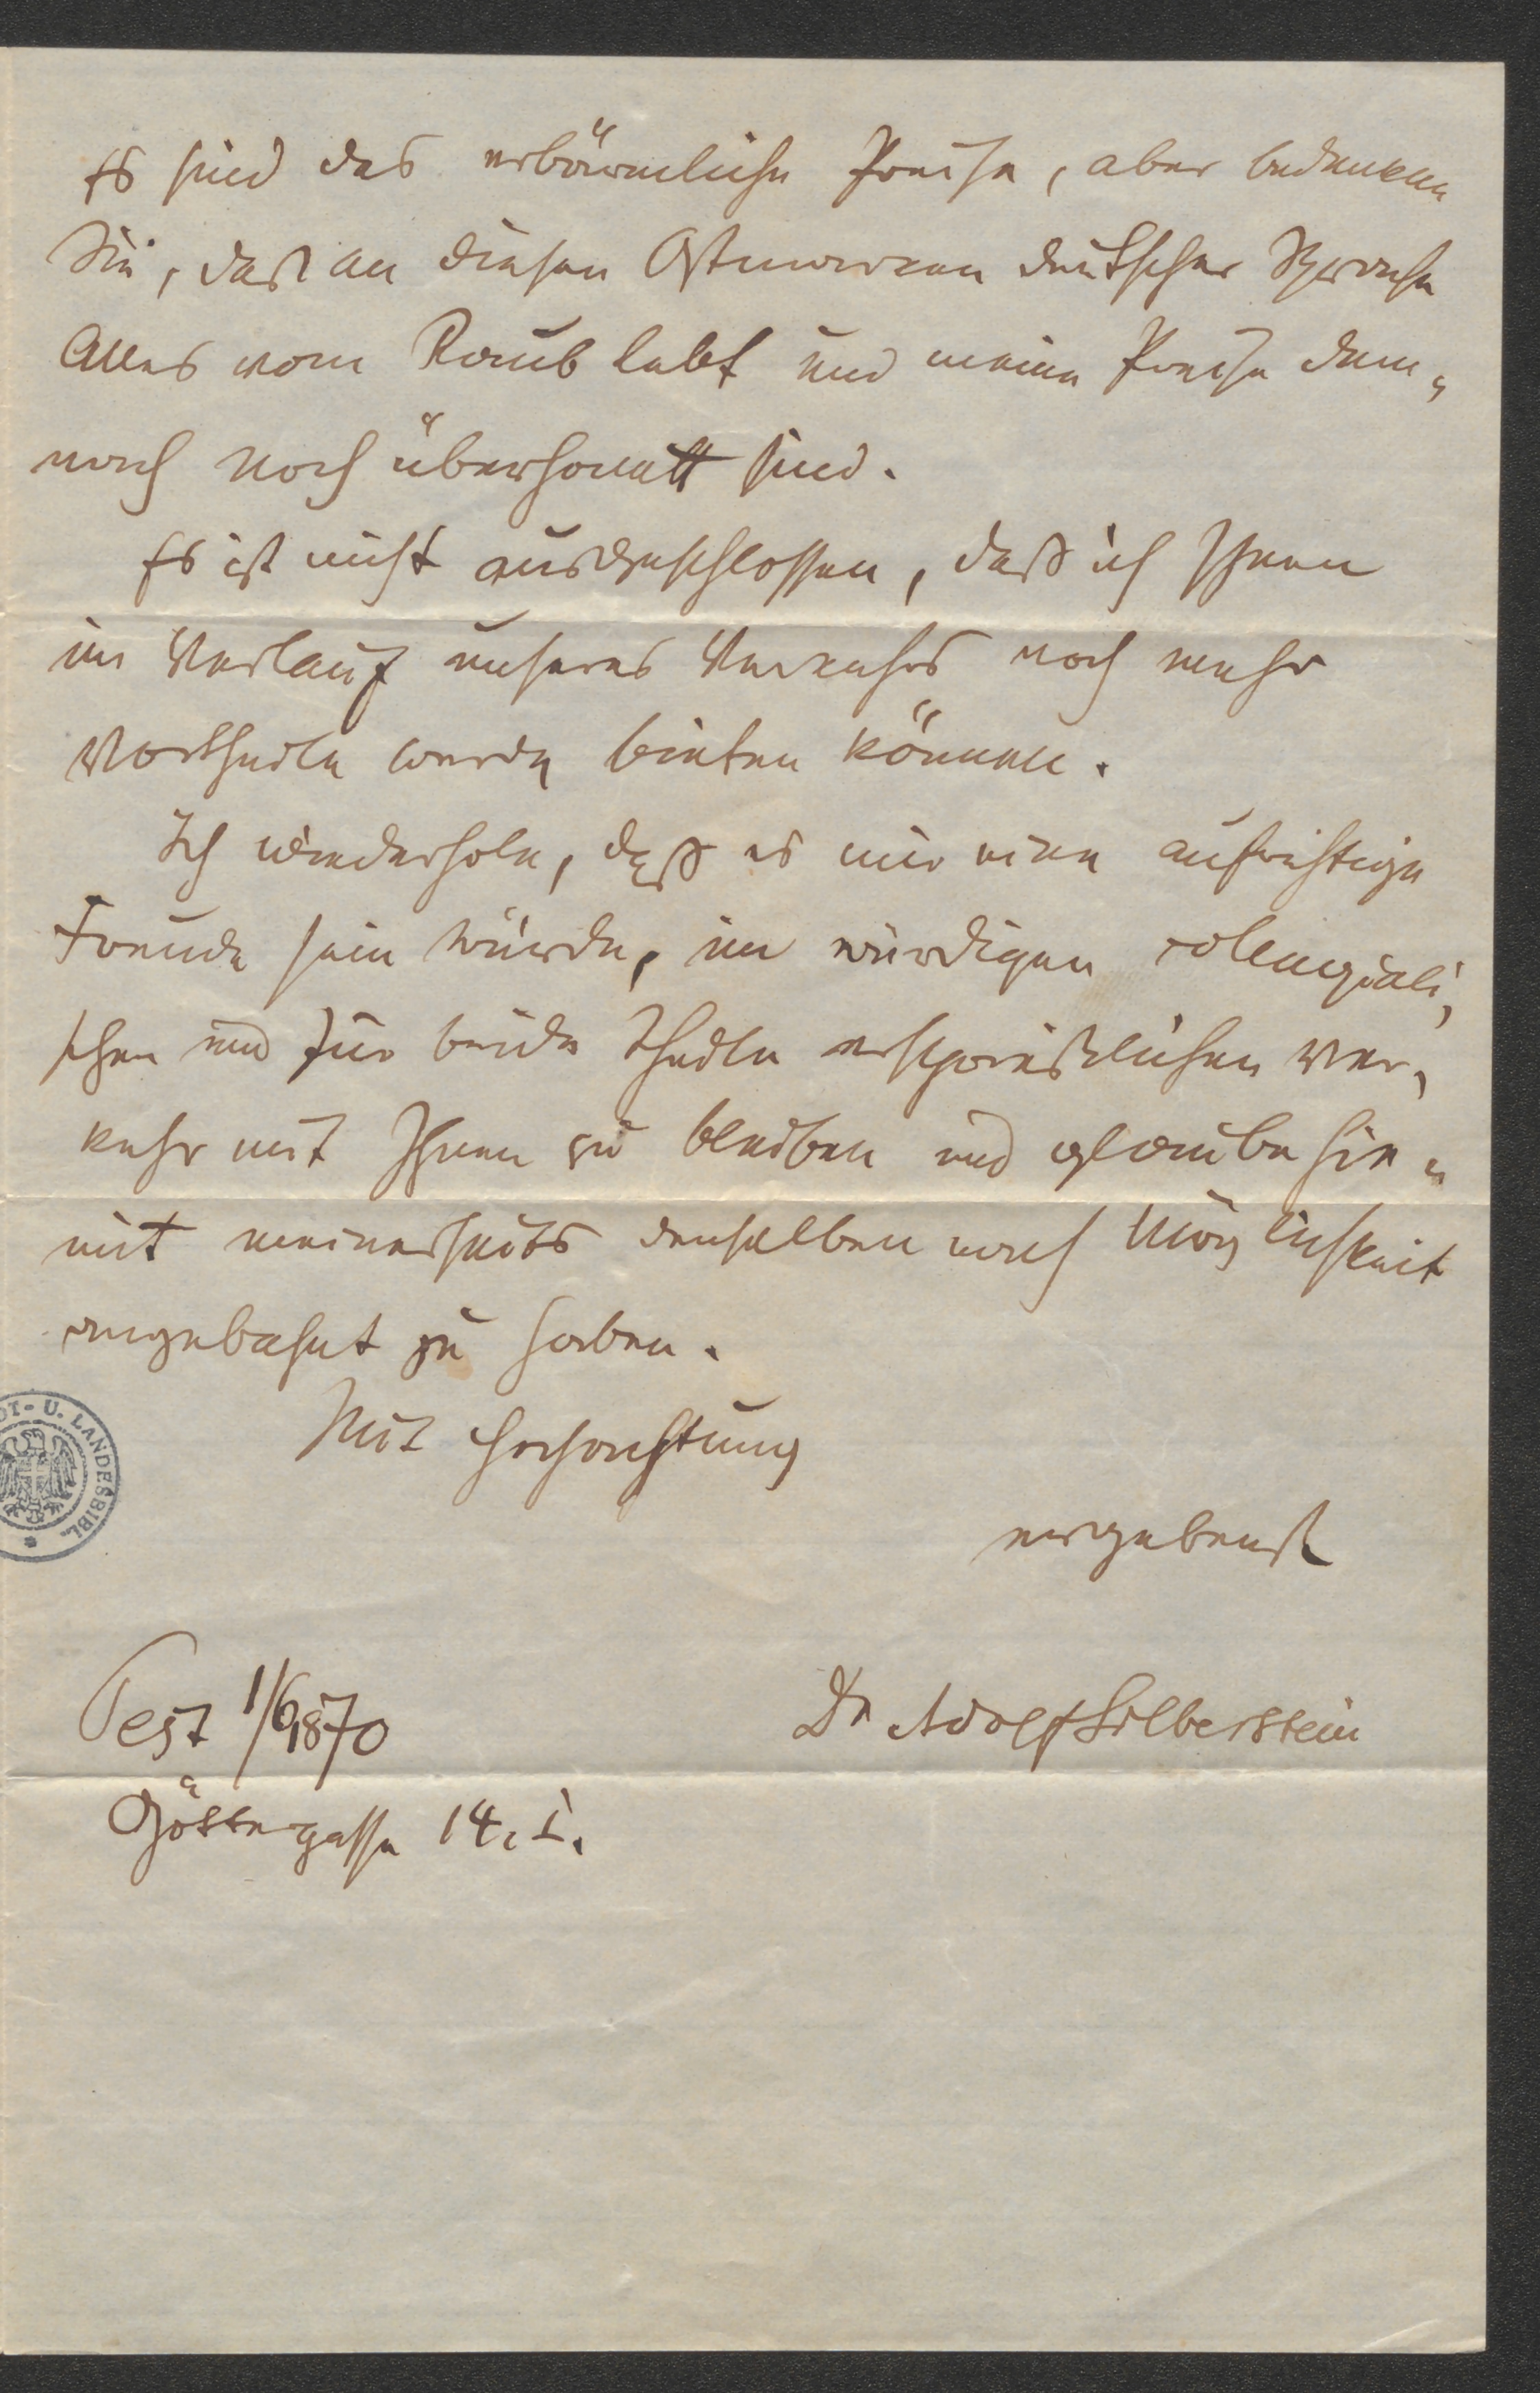 Es sind das erbärmliche Preise, aber bedenken
Sie, daß an diesen Ostmarken deutscher Sprache
Alles vom Raub lebt und meine Preise dem„
nach noch übersonett sind.
Es ist nicht ausgeschlossen, daß ich Ihnen
im Verlauf unseres Verkehrs noch mehr
Vortheile werde bieten können.
Ich wiederhole, daß es mir eine aufrichtige
Freude sein würde, im würdigen collegiali„
schen und für beide Theile ersprießlichen Ver„
kehr mit Ihnen zu bleiben und glaube hie„
mit meinerseits denselben nach Möglichkeit
angebahnt zu haben.
Mit Hochachtung
ergebenst
Pest 1/6 1870
Dr Adolf Silberstein
Göttergasse 14, I.
DT- U. LANDESBIBL.